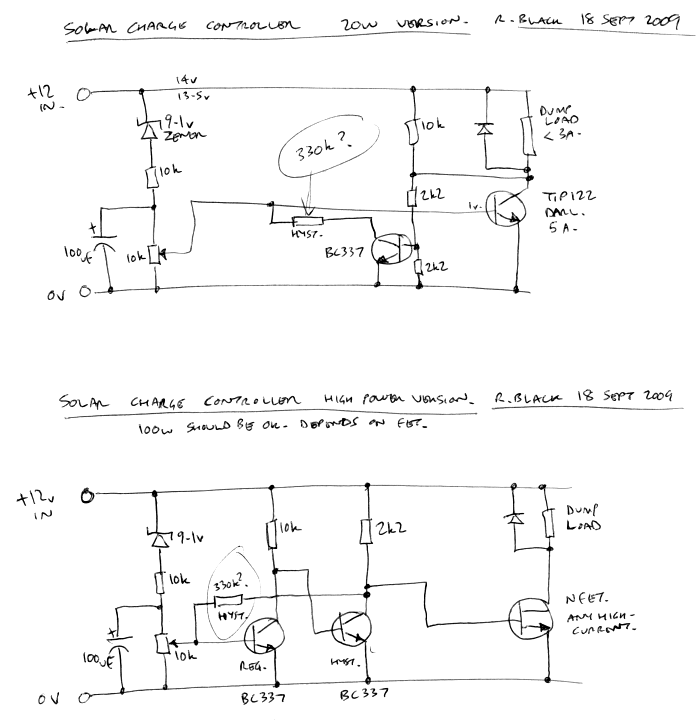 SOLAR CHARGE CONTROLLER 20W VERSION. R. BLACK 18 SEPT 2009
+12 IN.
14v
13-5v
9-1v ZENER
10k
100uF
10k
0V
330k?
HYST.
BC337
10k
2k2
2k2
1v.
DUMP LOAD < 3A.
TIP122 DARL. 5A.
SOLAR CHARGE CONTROLLER HIGH POWER VERSION. R. BLACK 18 SEPT 2009
100W SHOULD BE OK. DEPENDS ON FET.
+12v IN
9-1v
10k
100uF
10k
0V
330k?
HYST.
10k
REG.
BC337
2k2
HYST.
BC337
DUMP LOAD
NFET.
ANY HIGH-
CURRENT.